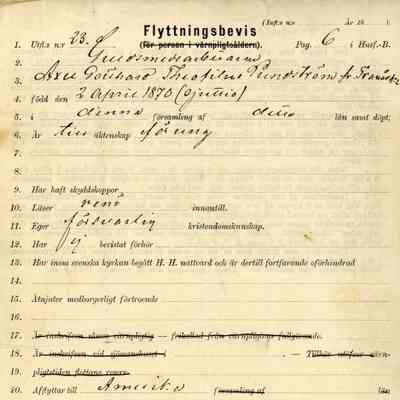 (Inft:s n:r År 18 )
Flyttningsbevis
(för person i värnpligtsåldern).
1. Utft:s n:r 23. Pag. 6 i Husf.-B.
2.
3. Axel Gotthard Theofilus Lundström
4. född den 2 April 1870 (Sjuttio)
5. i denna församling af län samt döpt;
6. Är till äktenskap
7.
8.
9. Har haft skyddskoppor
10. Läser innantill.
11. Eger försvarlig kristendomskunskap.
12. Har ej bevistat förhör
13. Har inom svenska kyrkan begått H. H. nattvard och är dertill fortfarande oförhindrad
14.
15. Åtnjuter medborgerligt förtroende
16.
17. Är inskrifven såsom värnpligtig — frikallad från värnpligtens fullgörande.
18. Är inskrifven vid sjömanshuset i — Tillhör utöfver värn-
19. pligtstiden flottans reserv.
20. Afflyttar till Amerika församling af län.